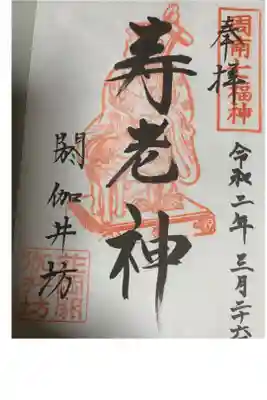 奉拝
周南七福神
令和二年三月二十六
寿老神
閼伽井坊